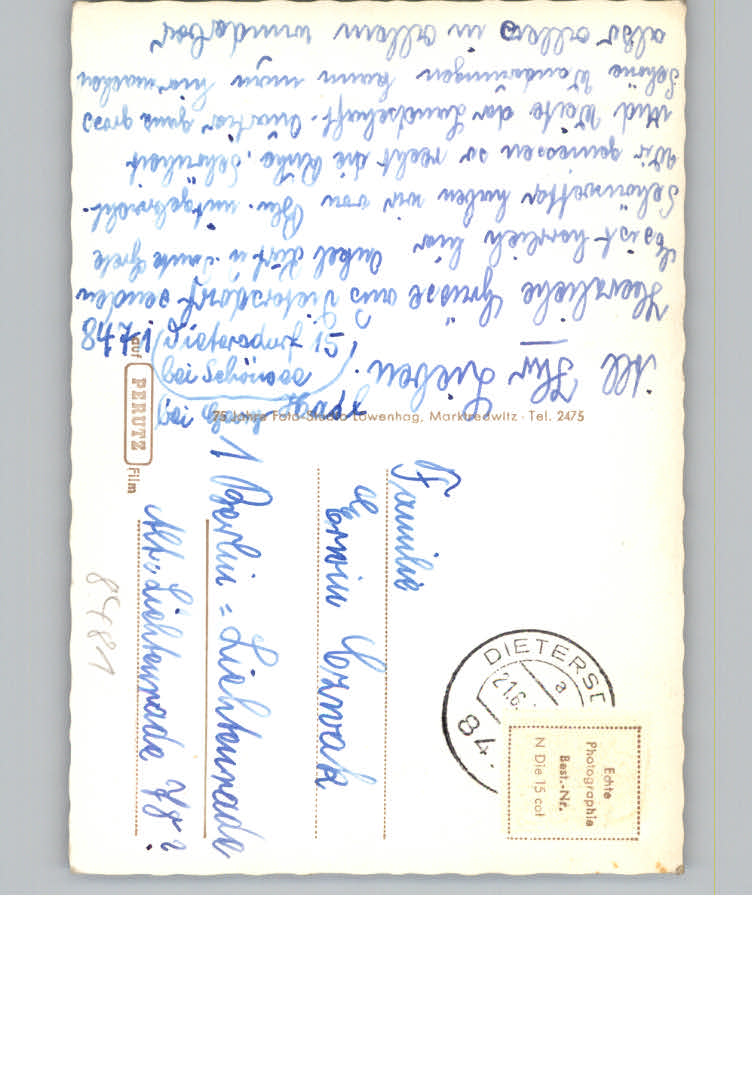 All Ihr Lieben.
Herzliche Grüsse aus Dietersdorf senden
Onkel Kurt u. Tante Grete
Es ist herrlich hier
Schönwetter haben wir von Bln. mitgebracht.
Wir geniessen so recht die Ruhe, Schönheit
und Weite der Landschaft. Quartier ganz gross
Schöne Wandrungen kann man hier machen
also alles in Allem wunderbar
8471 Dietersdorf 15
bei Schönsee
bei
75 Jahre Foto-Studio Löwenhag, Marktredwitz · Tel. 2475
auf PERUTZ Film
Familie
Erwin
1 Berlin = Lichtenrade
Alt = Lichtenrade
8481
DIETERSD
21.6.
a
84
Echte
Photographie
Best.-Nr.
N Die 15 col